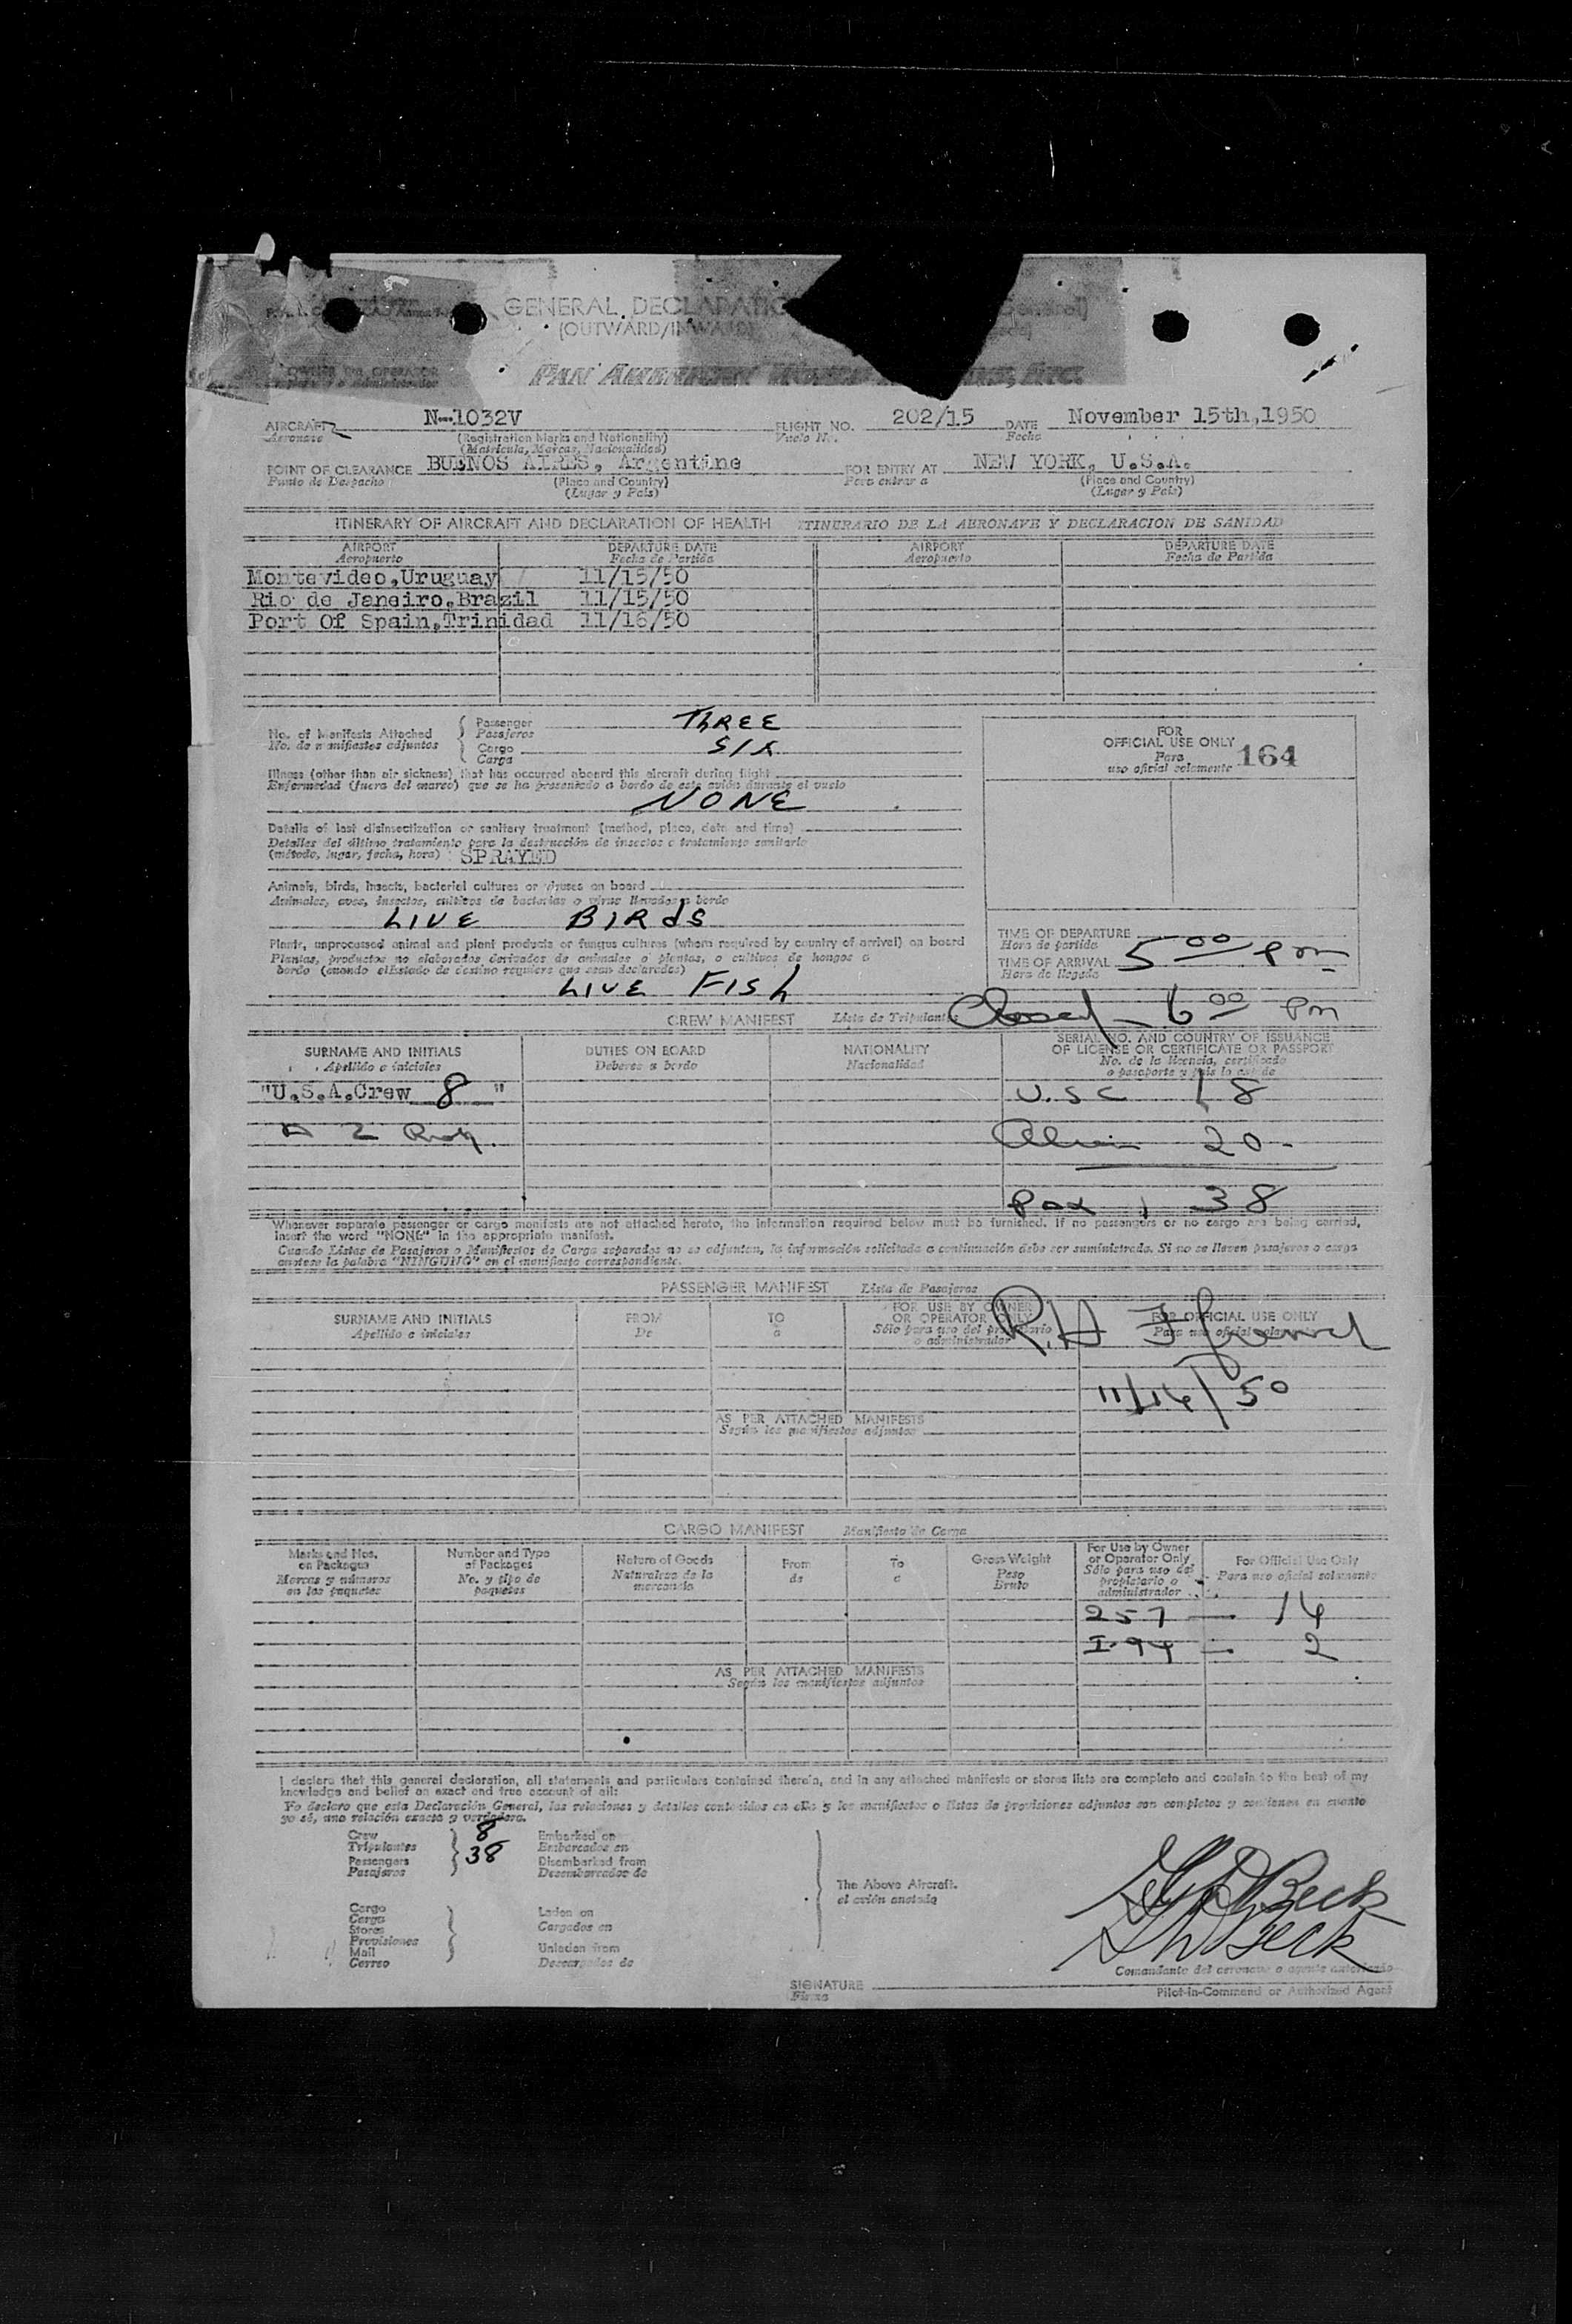 GENERAL DECLARATIO
(OUTWARD/INWARD)
PAN AMERICAN
AIRCRAFT N-1032V FLIGHT NO. 202/15 DATE November 15th,1950
Aeronave (Registration Marks and Nationality) Vuelo No. Fecha
(Matrícula, Marcas, Nacionalidad)
POINT OF CLEARANCE BUENOS AIRES, Argentine FOR ENTRY AT NEW YORK, U.S.A.
Punto de Despacho (Place and Country) Para entrar a (Place and Country)
(Lugar y País) (Lugar y País)
ITINERARY OF AIRCRAFT AND DECLARATION OF HEALTH ITINERARIO DE LA AERONAVE Y DECLARACION DE SANIDAD
AIRPORT DEPARTURE DATE AIRPORT DEPARTURE DATE
Aeropuerto Fecha de Partida Aeropuerto Fecha de Partida
Montevideo,Uruguay 11/15/50
Rio de Janeiro,Brazil 11/15/50
Port Of Spain,Trinidad 11/16/50
No. of Manifests Attached Passenger THREE
No. de manifiestos adjuntos Pasajeros
Cargo SIX
Carga
FOR
OFFICIAL USE ONLY
Para
uso oficial solamente 164
Illness (other than air sickness) that has occurred aboard this aircraft during flight
Enfermedad (fuera del mareo) que se ha presentado a bordo de este avión durante el vuelo
NONE
Details of last disinsectization or sanitary treatment (method, place, date and time)
Detalles del último tratamiento para la destrucción de insectos o tratamiento sanitario
(método, lugar, fecha, hora) SPRAYED
Animals, birds, insects, bacterial cultures or viruses on board
Animales, aves, insectos, cultivos de bacterias o virus llevados a bordo
LIVE BIRDS
Plants, unprocessed animal and plant products or fungus cultures (where required by country of arrival) on board
Plantas, productos no elaborados derivados de animales o plantas, o cultivos de hongos a
bordo (cuando elEstado de destino requiere que sean declarados)
LIVE FISH
TIME OF DEPARTURE
Hora de partida
TIME OF ARRIVAL 5 00 pm
Hora de llegada
Closed - 6 00 pm
CREW MANIFEST Lista de Tripulantes
SURNAME AND INITIALS DUTIES ON BOARD NATIONALITY SERIAL NO. AND COUNTRY OF ISSUANCE
OF LICENSE OR CERTIFICATE OR PASSPORT
Apellido e iniciales Deberes a bordo Nacionalidad No. de la licencia, certificado
o pasaporte y país lo expide
"U.S.A.Crew 8 " U.SC 18
2 Alien 20 -
Pax 38
Whenever separate passenger or cargo manifests are not attached hereto, the information required below must be furnished. If no passengers or no cargo are being carried,
insert the word "NONE" in the appropriate manifest.
Cuando Listas de Pasajeros o Manifiestos de Carga separados no se adjuntan, la información solicitada a continuación debe ser suministrada. Si no se lleven pasajeros o carga
anótese la palabra "NINGUNO" en el manifiesto correspondiente.
PASSENGER MANIFEST Lista de Pasajeros
SURNAME AND INITIALS FROM TO FOR USE BY OWNER FOR OFFICIAL USE ONLY
OR OPERATOR ONLY
Apellido e iniciales De a Sólo para uso del propietario Para uso oficial solamente
o administrador
R.H
11/16/50
AS PER ATTACHED MANIFESTS
Según los manifiestos adjuntos
CARGO MANIFEST Manifiesto de Carga
Marks and Nos. Number and Type Nature of Goods From To Gross Weight For Use by Owner For Official Use Only
on Packages of Packages Naturaleza de la de a Peso or Operator Only Para uso oficial solamente
Marcas y números No. y tipo de mercancía Bruto Sólo para uso del
en los paquetes paquetes propietario o
administrador
257 — 14
I-94 — 2
AS PER ATTACHED MANIFESTS
Según los manifiestos adjuntos
I declare that this general declaration, all statements and particulars contained therein, and in any attached manifests or stores lists are complete and contain to the best of my
knowledge and belief an exact and true account of all:
Yo declaro que esta Declaración General, las relaciones y detalles contenidos en ella y los manifiestos o listas de provisiones adjuntos son completos y contienen en cuanto
yo sé, una relación exacta y verdadera.
Crew 8 Embarked on
Tripulantes Embarcados en
Passengers 38 Disembarked from
Pasajeros Desembarcados de
The Above Aircraft.
el avión anotado
Cargo Laden on
Carga Cargados en
Stores
Provisiones
Mail Unladen from
Correo Descargados de
Beck
Beck
Comandante del aeronave o agente autorizado
SIGNATURE
Firma Pilot-in-Command or Authorized Agent